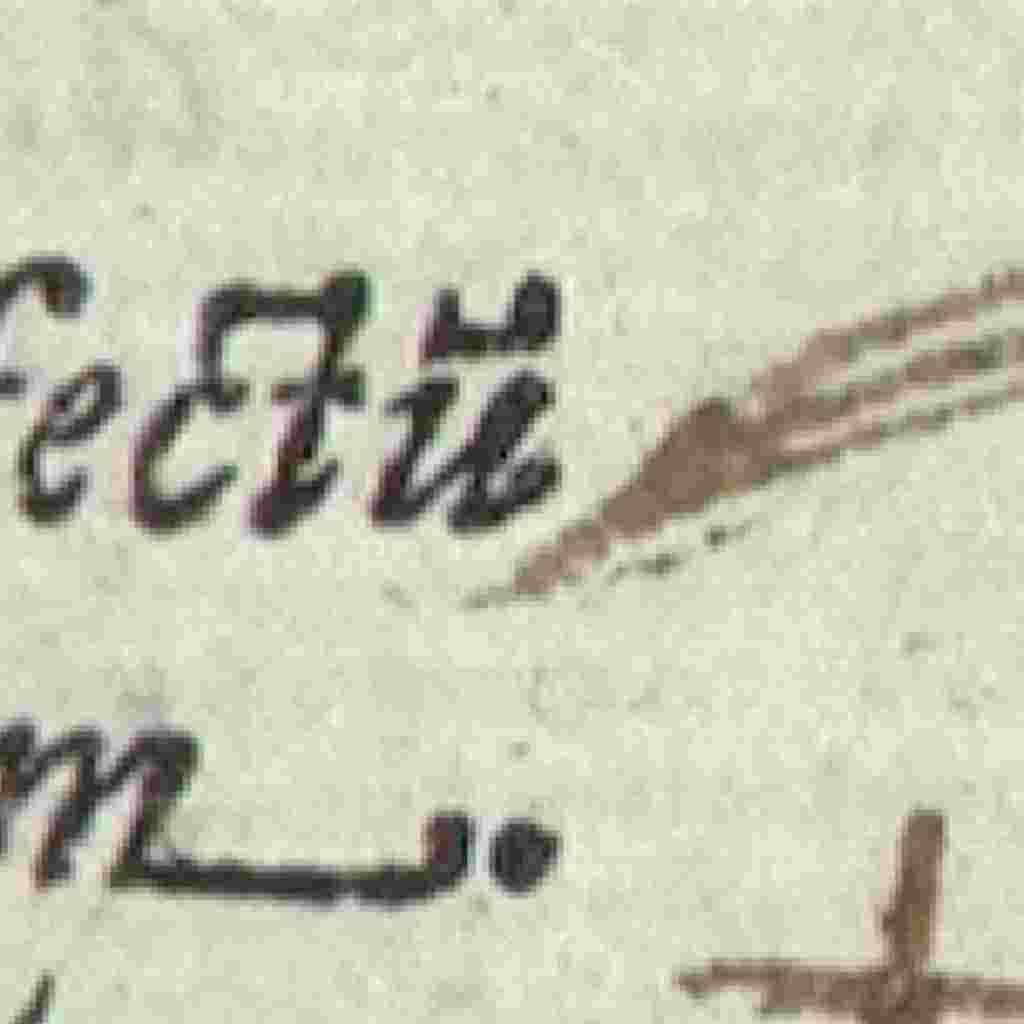 fectū
m.